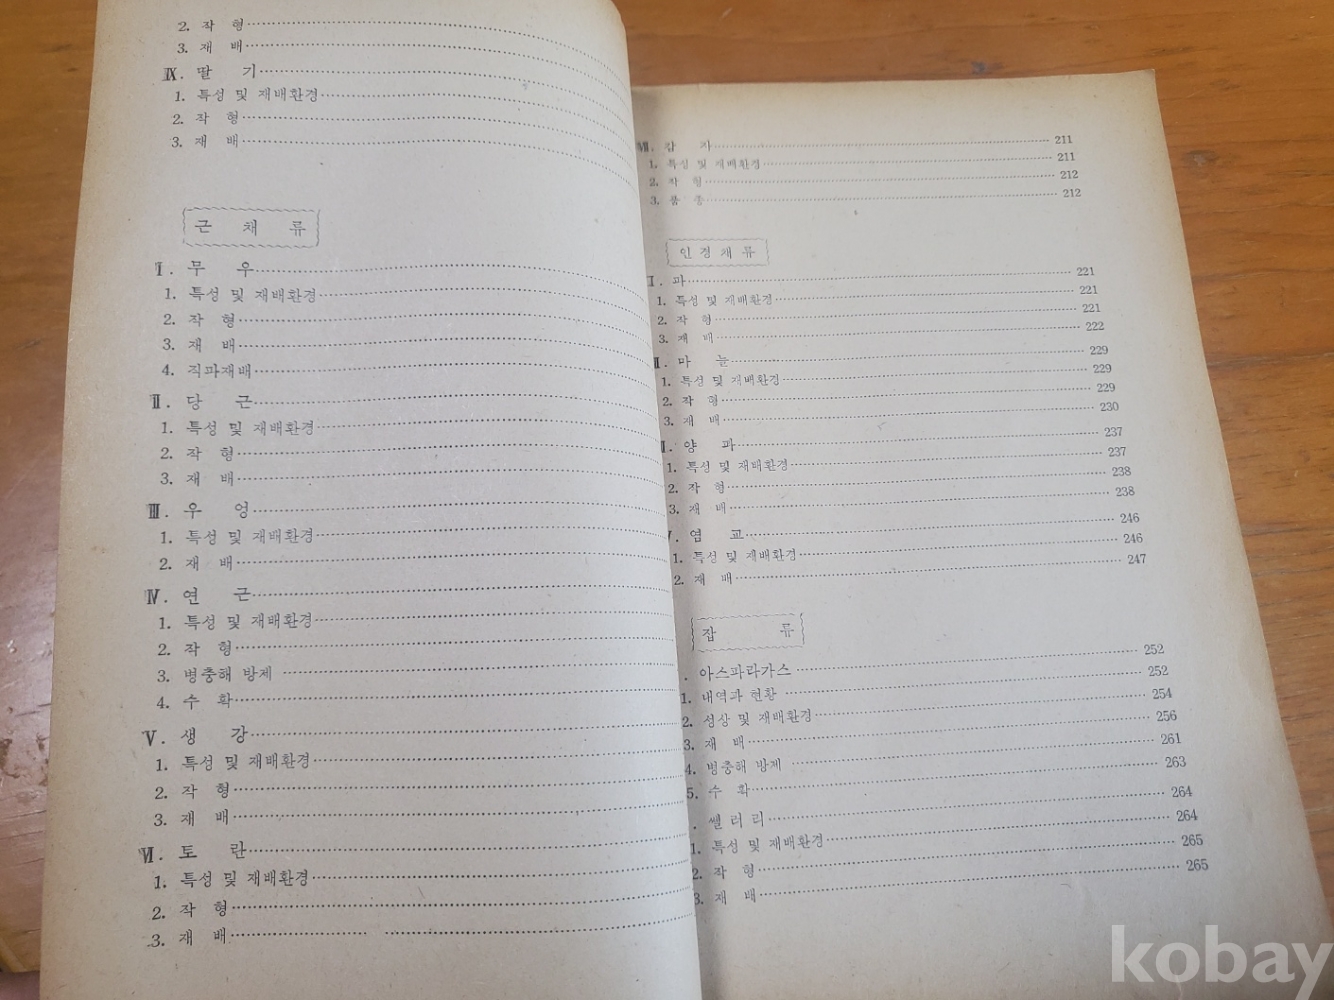 2. 작 형
3. 재 배
Ⅸ. 딸 기
1. 특성 및 재배환경
2. 작 형
3. 재 배
근 채 류
Ⅰ. 무 우
1. 특성 및 재배환경
2. 작 형
3. 재 배
4. 직파재배
Ⅱ. 당 근
1. 특성 및 재배환경
2. 작 형
3. 재 배
Ⅲ. 우 엉
1. 특성 및 재배환경
2. 재 배
Ⅳ. 연 근
1. 특성 및 재배환경
2. 작 형
3. 병충해 방제
4. 수 확
Ⅴ. 생 강
1. 특성 및 재배환경
2. 작 형
3. 재 배
Ⅵ. 토 란
1. 특성 및 재배환경
2. 작 형
3. 재 배
Ⅶ. 감 자 211
1. 특성 및 재배환경 211
2. 작 형 212
3. 품 종 212
인경채류
Ⅰ. 파 221
1. 특성 및 재배환경 221
2. 작 형 221
3. 재 배 222
Ⅱ. 마 늘 229
1. 특성 및 재배환경 229
2. 작 형 229
3. 재 배 230
Ⅲ. 양 파 237
1. 특성 및 재배환경 237
2. 작 형 238
3. 재 배 238
. 염 교 246
1. 특성 및 재배환경 246
2. 재 배 247
잡 류
. 아스파라가스 252
1. 내역과 현황 252
2. 성상 및 재배환경 254
3. 재 배 256
4. 병충해 방제 261
5. 수 확 263
. 쎌러리 264
1. 특성 및 재배환경 264
2. 작 형 265
3. 재 배 265
kobay